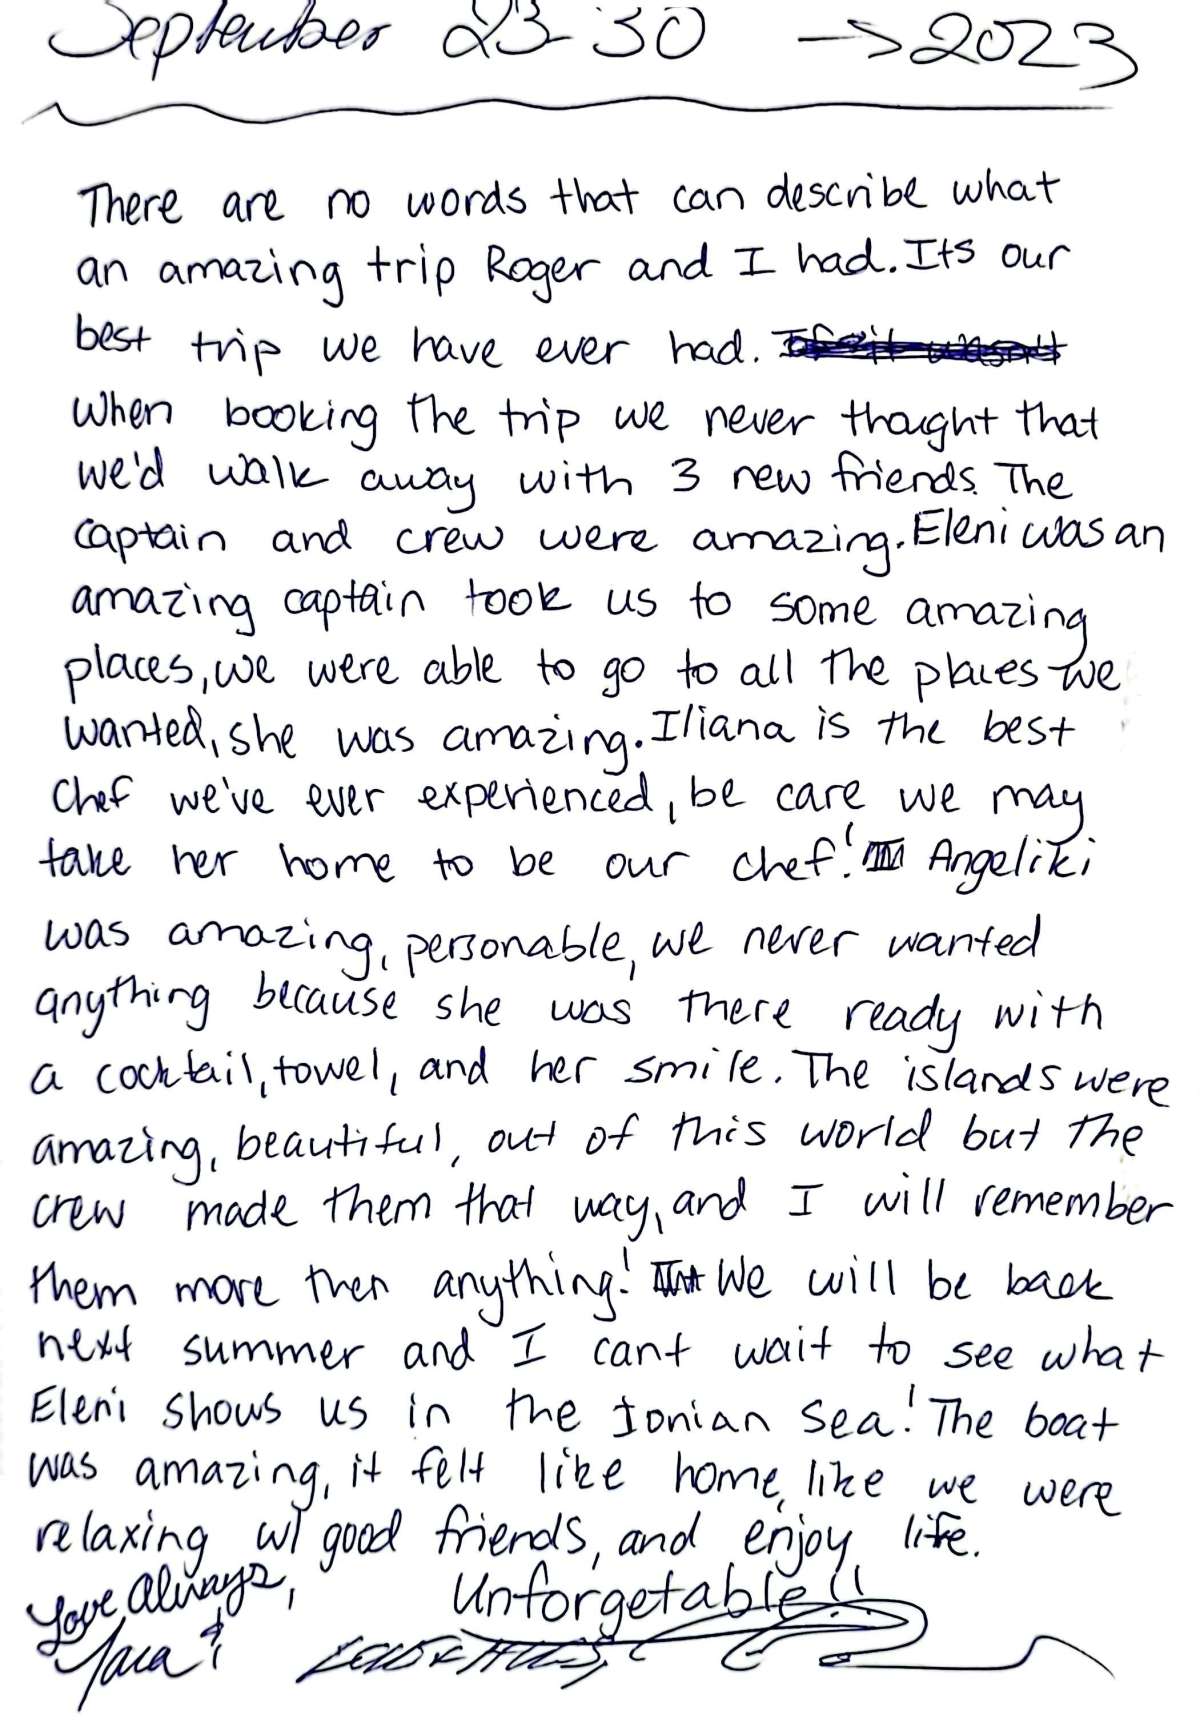 September 23-30 → 2023
There are no words that can describe what
an amazing trip Roger and I had. Its our
best trip we have ever had.
When booking the trip we never thought that
we'd walk away with 3 new friends. The
captain and crew were amazing. Eleni was an
amazing captain took us to some amazing
places, we were able to go to all the places we
wanted, she was amazing. Iliana is the best
chef we've ever experienced, be care we may
take her home to be our chef! Angeliki
was amazing, personable, we never wanted
anything because she was there ready with
a cocktail, towel, and her smile. The islands were
amazing, beautiful, out of this world but the
crew made them that way, and I will remember
them more then anything! We will be back
next summer and I cant wait to see what
Eleni shows us in the Ionian Sea! The boat
was amazing, it felt like home, like we were
relaxing w/ good friends, and enjoy life.
Love Always,
Unforgetable!!
&